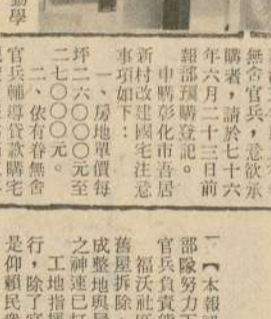 無舍官兵，意欲承
購者，請於七十六
年六月二十三日前
報部預購登記。
申購彰化市吾居
新村改建國宅注意
事項如下：
一、房地單價每
坪二六〇〇〇元至
二七〇〇〇元。
二、依有眷無舍
官兵輔導貸款購宅
【本報
部隊努力
官兵負責
福沃社
舊屋拆除
成整地與
之神速已
工地指
行，除了
是仰賴民